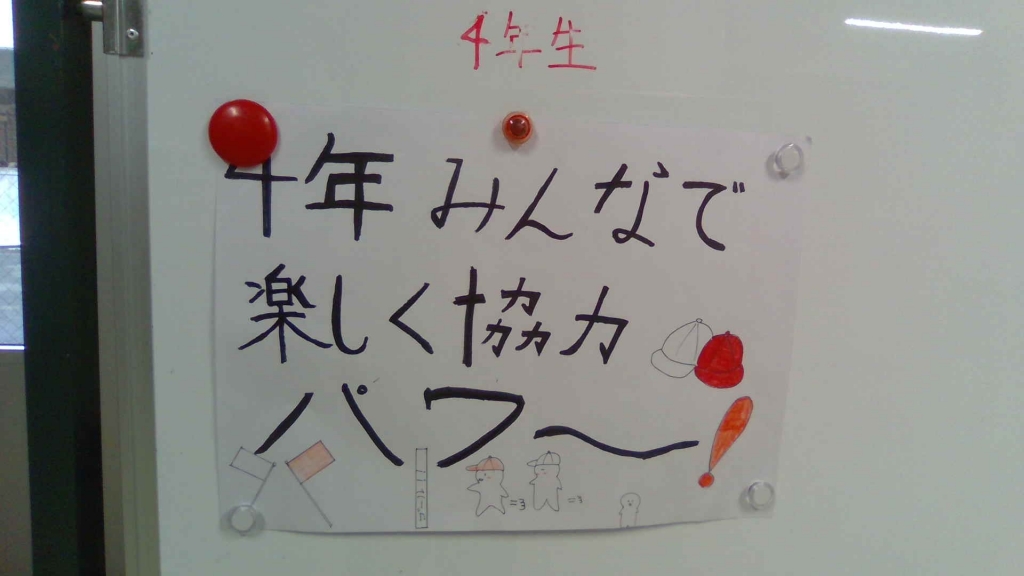 4年生
4年 みんなで
楽しく協力
パワ〜!
=3
=3